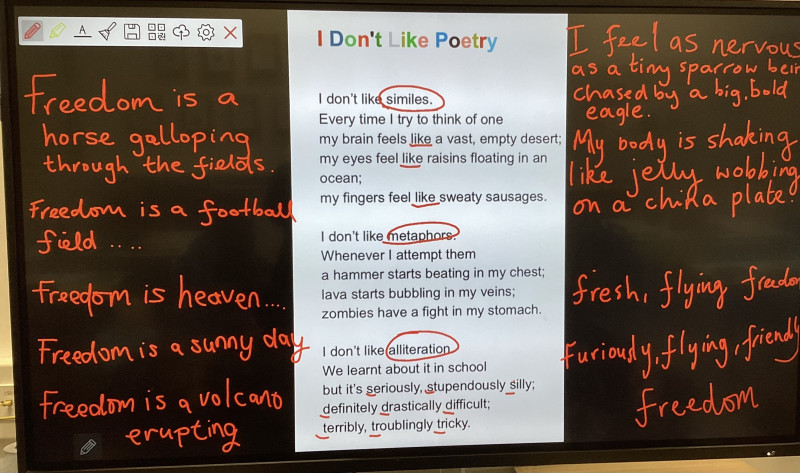 Freedom is a
horse galloping
through the fields.
Freedom is a football
field ....
Freedom is heaven....
Freedom is a sunny day
Freedom is a volcano
erupting
I Don't Like Poetry
I don't like similes.
Every time I try to think of one
my brain feels like a vast, empty desert;
my eyes feel like raisins floating in an
ocean;
my fingers feel like sweaty sausages.
I don't like metaphors.
Whenever I attempt them
a hammer starts beating in my chest;
lava starts bubbling in my veins;
zombies have a fight in my stomach.
I don't like alliteration.
We learnt about it in school
but it's seriously, stupendously silly;
definitely drastically difficult;
terribly, troublingly tricky.
I feel as nervous
as a tiny sparrow bein
chased by a big, bold
eagle.
My body is shaking
like jelly wobbing
on a china plate.
fresh, flying freedom
furiously, flying, friendly
freedom